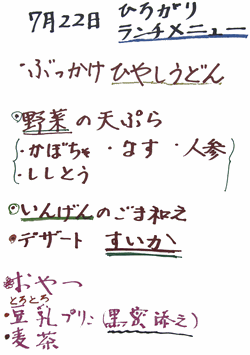 7月22日 ひろがり
ランチメニュー
・ぶっかけひやしうどん
◎野菜の天ぷら
・かぼちゃ ・なす ・人参
・ししとう
◎いんげんのごま和え
・デザート すいか
おやつ
とろとろ
・豆乳プリン(黒蜜添え)
・麦茶